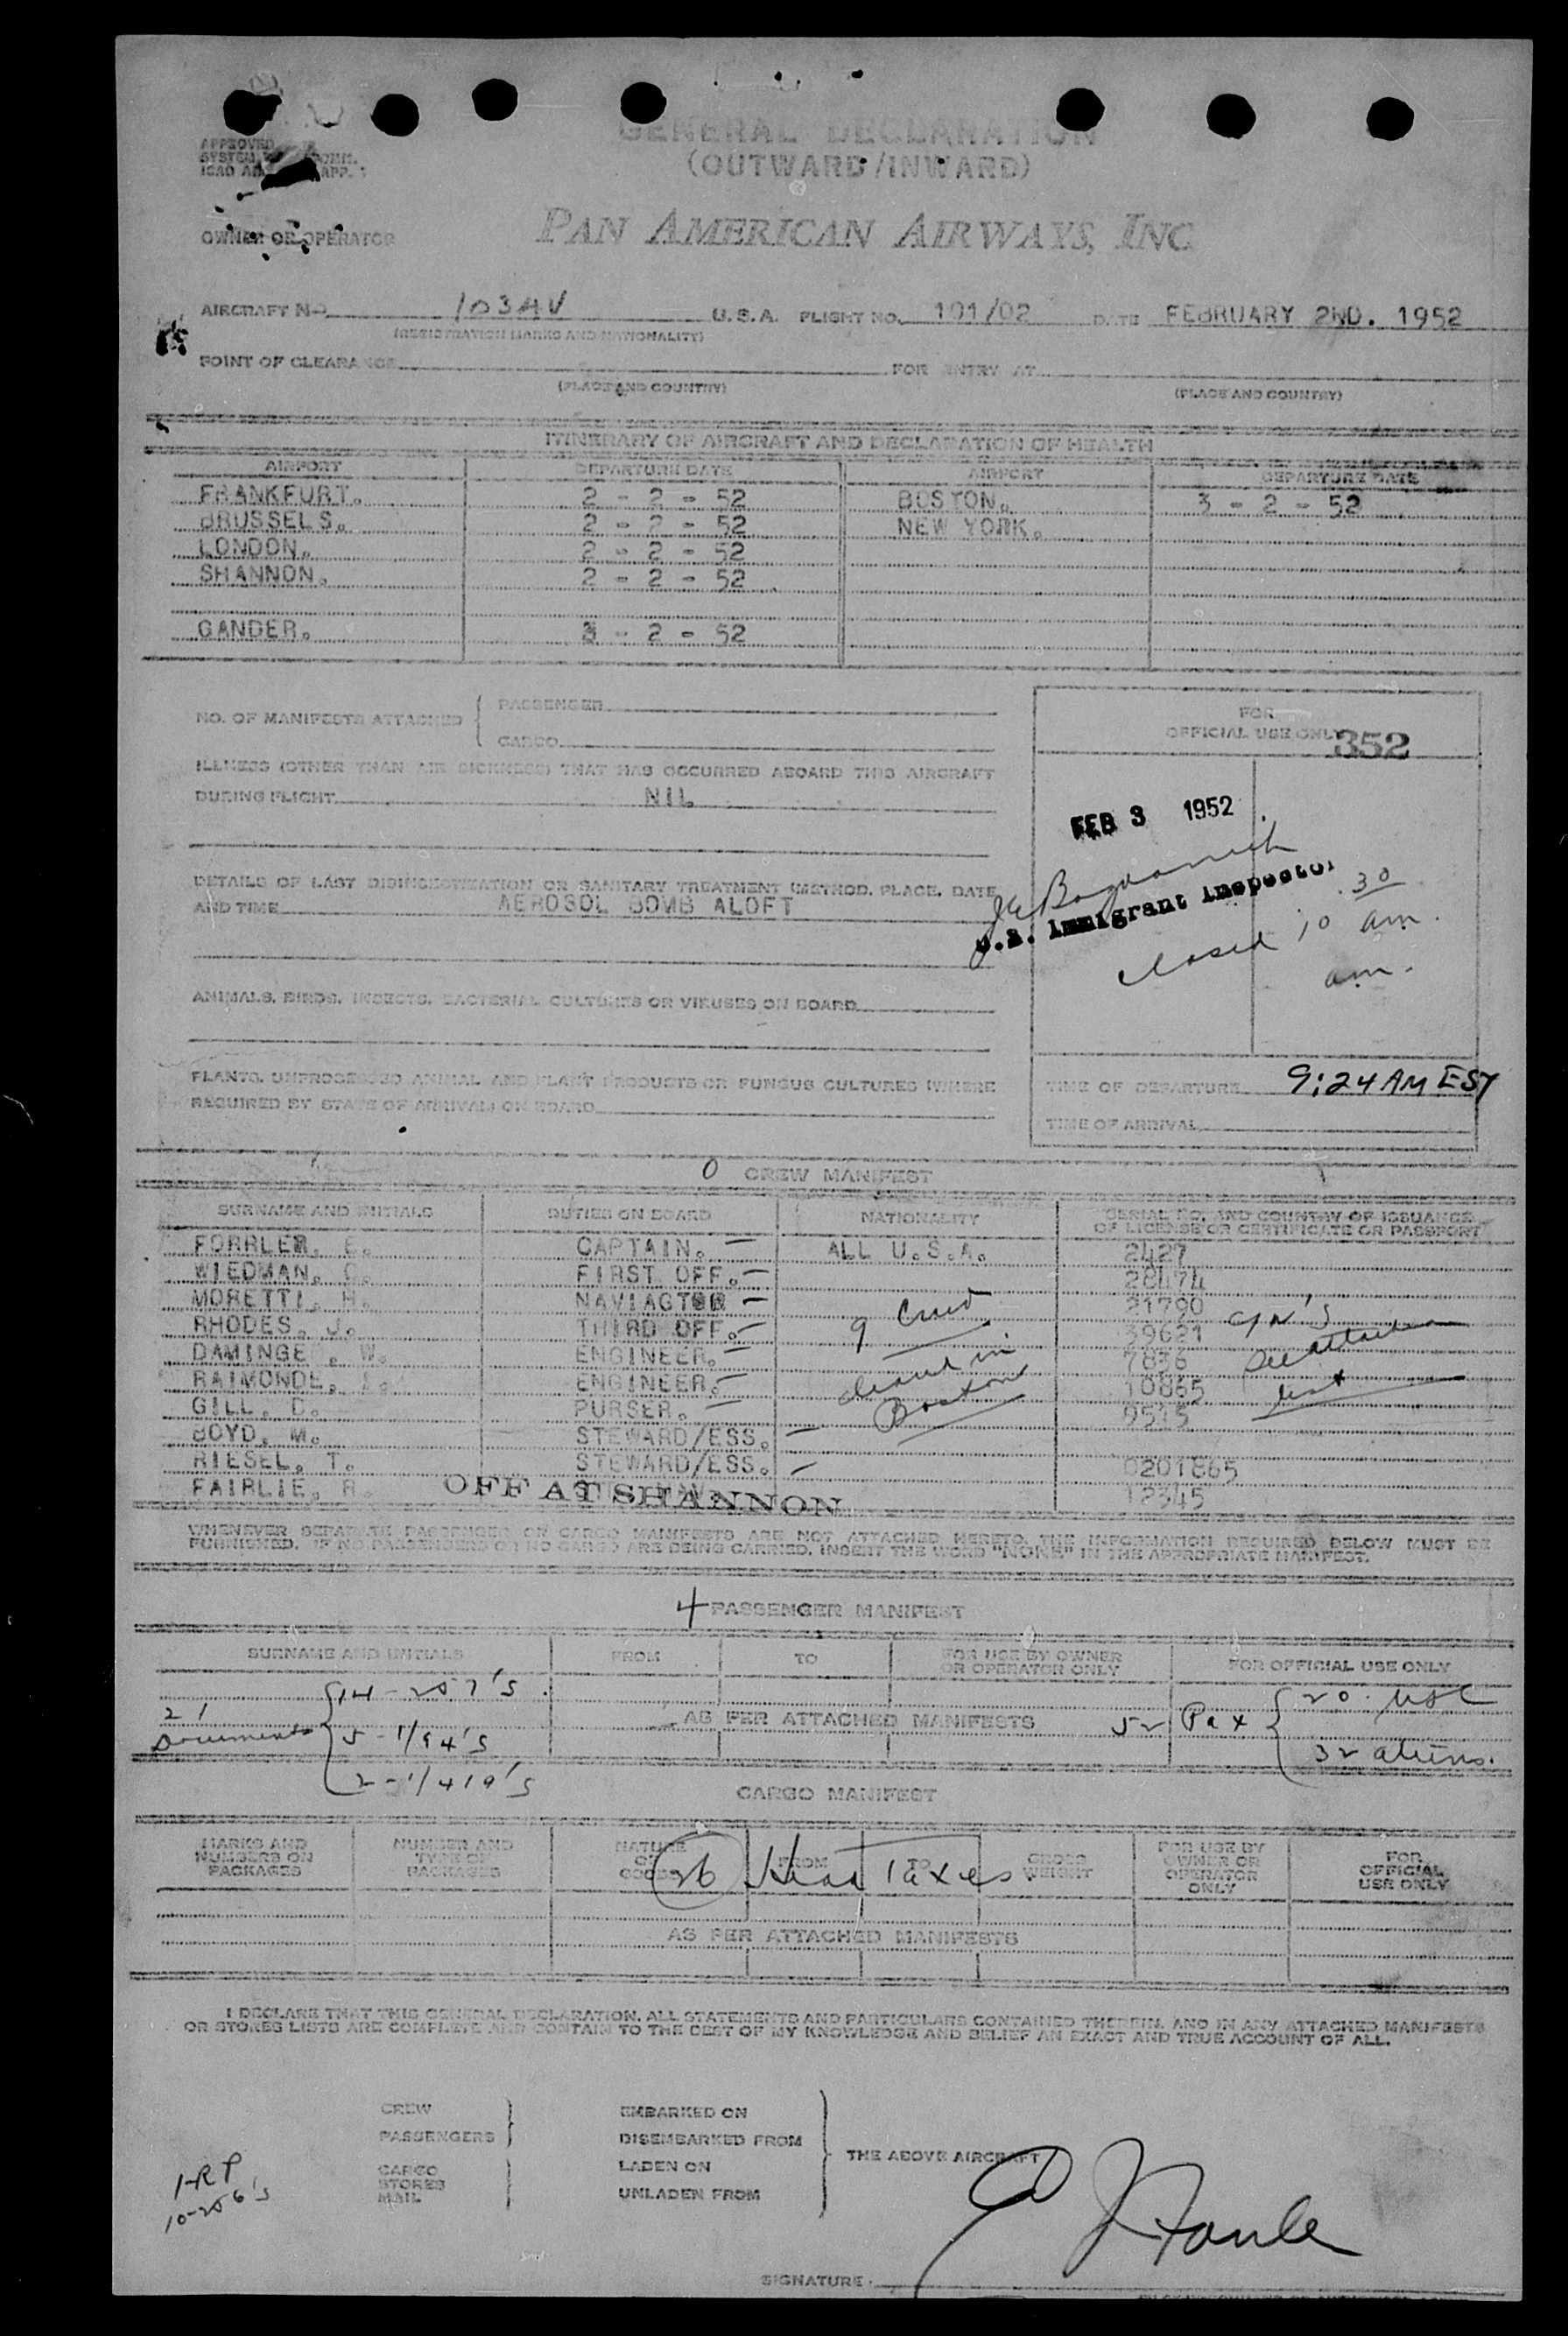 GENERAL DECLARATION
(OUTWARD/INWARD)
APPROVED
SYSTEM COMM.
ICAO APP. 1
OWNER OR OPERATOR PAN AMERICAN AIRWAYS, INC
AIRCRAFT NO. 103AV U.S.A. FLIGHT NO. 101/02 DATE FEBRUARY 2ND. 1952
(REGISTRATION MARKS AND NATIONALITY)
POINT OF CLEARANCE FOR ENTRY AT
(PLACE AND COUNTRY) (PLACE AND COUNTRY)
ITINERARY OF AIRCRAFT AND DECLARATION OF HEALTH
AIRPORT DEPARTURE DATE AIRPORT DEPARTURE DATE
FRANKFURT. 2 - 2 - 52 BOSTON. 3 - 2 - 52
BRUSSELS. 2 - 2 - 52 NEW YORK.
LONDON. 2 - 2 - 52
SHANNON. 2 - 2 - 52
GANDER. 3 - 2 - 52
NO. OF MANIFESTS ATTACHED
PASSENGER
CARGO
FOR
OFFICIAL USE ONLY
352
ILLNESS (OTHER THAN AIR SICKNESS) THAT HAS OCCURRED ABOARD THIS AIRCRAFT
DURING FLIGHT NIL
FEB 3 1952
U.S. Immigrant Inspector
closed 10 30 am.
am.
DETAILS OF LAST DISINSECTIZATION OR SANITARY TREATMENT (METHOD, PLACE, DATE
AND TIME AEROSOL BOMB ALOFT
ANIMALS, BIRDS, INSECTS, BACTERIAL CULTURES OR VIRUSES ON BOARD
PLANTS, UNPROCESSED ANIMAL AND PLANT PRODUCTS OR FUNGUS CULTURES (WHERE
REQUIRED BY STATE OF ARRIVAL) ON BOARD
TIME OF DEPARTURE 9:24 AM EST
TIME OF ARRIVAL
0 CREW MANIFEST
SURNAME AND INITIALS DUTIES ON BOARD NATIONALITY SERIAL NO. AND COUNTRY OF ISSUANCE
OF LICENSE OR CERTIFICATE OR PASSPORT
FORRLER, E. CAPTAIN. - ALL U.S.A. 2427
WIEDMAN, C. FIRST OFF. - 28474
MORETTI, H. NAVIAGTOR - 21790
RHODES, J. THIRD OFF. - 39621
DAMINGE, W. ENGINEER. - 7836
RAIMONDE, ENGINEER. - 10865
GILL, D. PURSER. - 9515
BOYD, M. STEWARD/ESS. -
RIESEL, T. STEWARD/ESS. - 0201865
FAIRLIE, R. OFF AT SHANNON 12345
9 Crew
cleared in
Boston
See attached
list
WHENEVER SEPARATE PASSENGER OR CARGO MANIFESTS ARE NOT ATTACHED HERETO, THE INFORMATION REQUIRED BELOW MUST BE
FURNISHED. IF NO PASSENGERS OR NO CARGO ARE BEING CARRIED, INSERT THE WORD "NONE" IN THE APPROPRIATE MANIFEST.
4 PASSENGER MANIFEST
SURNAME AND INITIALS FROM TO FOR USE BY OWNER
OR OPERATOR ONLY FOR OFFICIAL USE ONLY
21
Documents
14 - 257's
5 - 1/94's
2 - 1/419's
AS PER ATTACHED MANIFESTS
52 Pax
20. USC
32 aliens.
CARGO MANIFEST
MARKS AND
NUMBERS ON
PACKAGES
NUMBER AND
TYPE OF
PACKAGES
NATURE
OF
GOODS
FROM TO GROSS
WEIGHT
FOR USE BY
OWNER OR
OPERATOR
ONLY
FOR
OFFICIAL
USE ONLY
26 Head Taxes.
AS PER ATTACHED MANIFESTS
I DECLARE THAT THIS GENERAL DECLARATION, ALL STATEMENTS AND PARTICULARS CONTAINED THEREIN, AND IN ANY ATTACHED MANIFESTS
OR STORES LISTS ARE COMPLETE AND CONTAIN TO THE BEST OF MY KNOWLEDGE AND BELIEF AN EXACT AND TRUE ACCOUNT OF ALL.
CREW
PASSENGERS
CARGO
STORES
MAIL
EMBARKED ON
DISEMBARKED FROM
LADEN ON
UNLADEN FROM
THE ABOVE AIRCRAFT
1-RP
10-256's
SIGNATURE